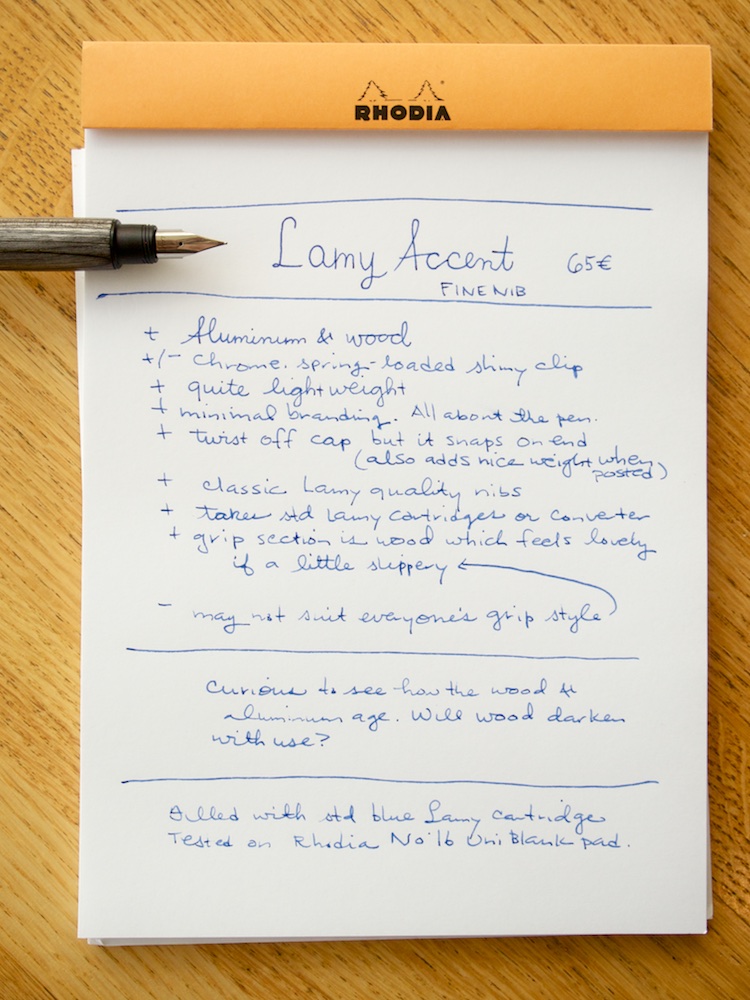 RHODIA
Lamy Accent 65€
FINE NIB
+ Aluminum & wood
+/- Chrome. spring-loaded shiny clip
+ quite lightweight
+ minimal branding. All about the pen.
+ twist off cap but it snaps on end
(also adds nice weight when
posted)
+ classic Lamy quality nibs
+ takes std Lamy cartridges or converter
+ grip section is wood which feels lovely
if a little slippery
- may not suit everyone's grip style
Curious to see how the wood &
aluminum age. Will wood darken
with use?
Filled with std blue Lamy cartridge
Tested on Rhodia No 16 Uni Blank pad.